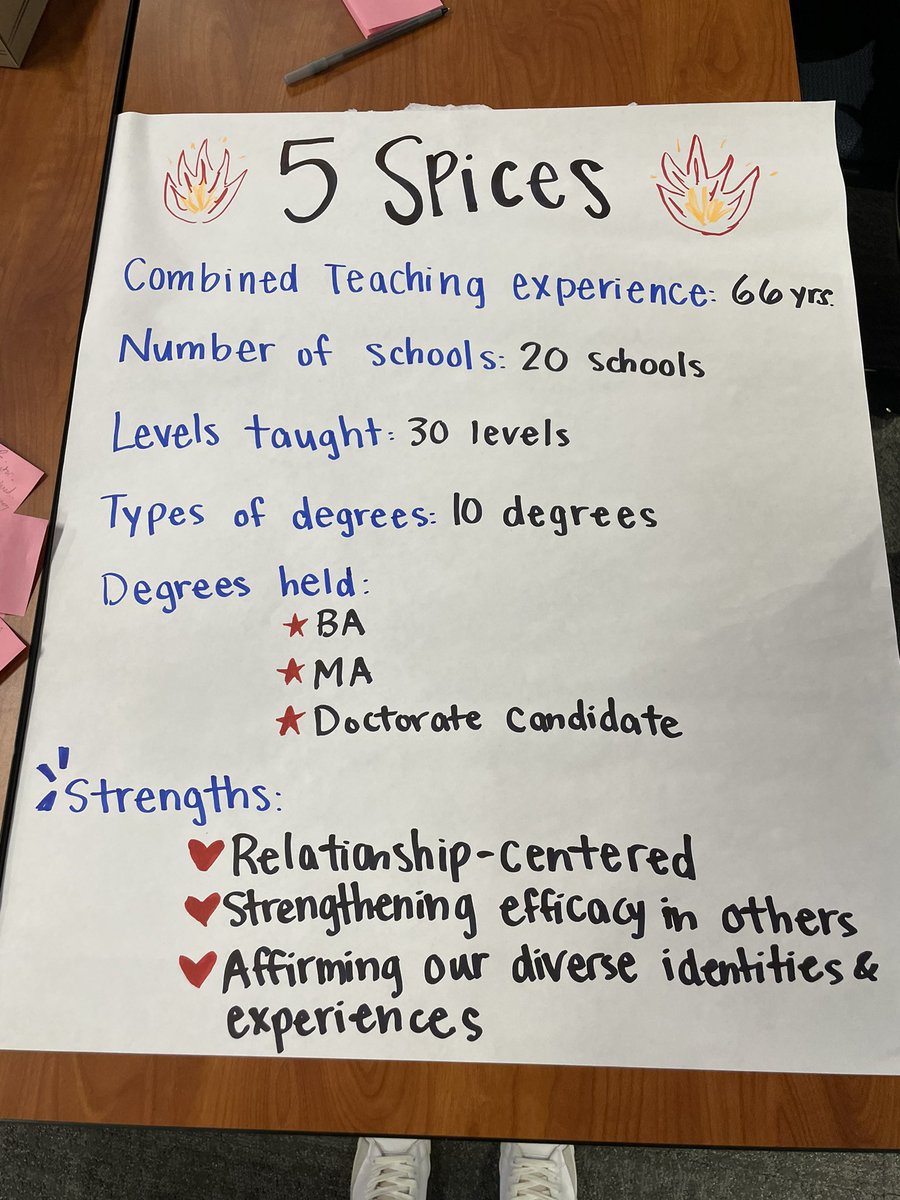 5 Spices
Combined Teaching experience: 66 yrs.
Number of schools: 20 schools
Levels taught: 30 levels
Types of degrees: 10 degrees
Degrees held:
BA
MA
Doctorate candidate
Strengths:
Relationship-centered
Strengthening efficacy in others
Affirming our diverse identities &
experiences